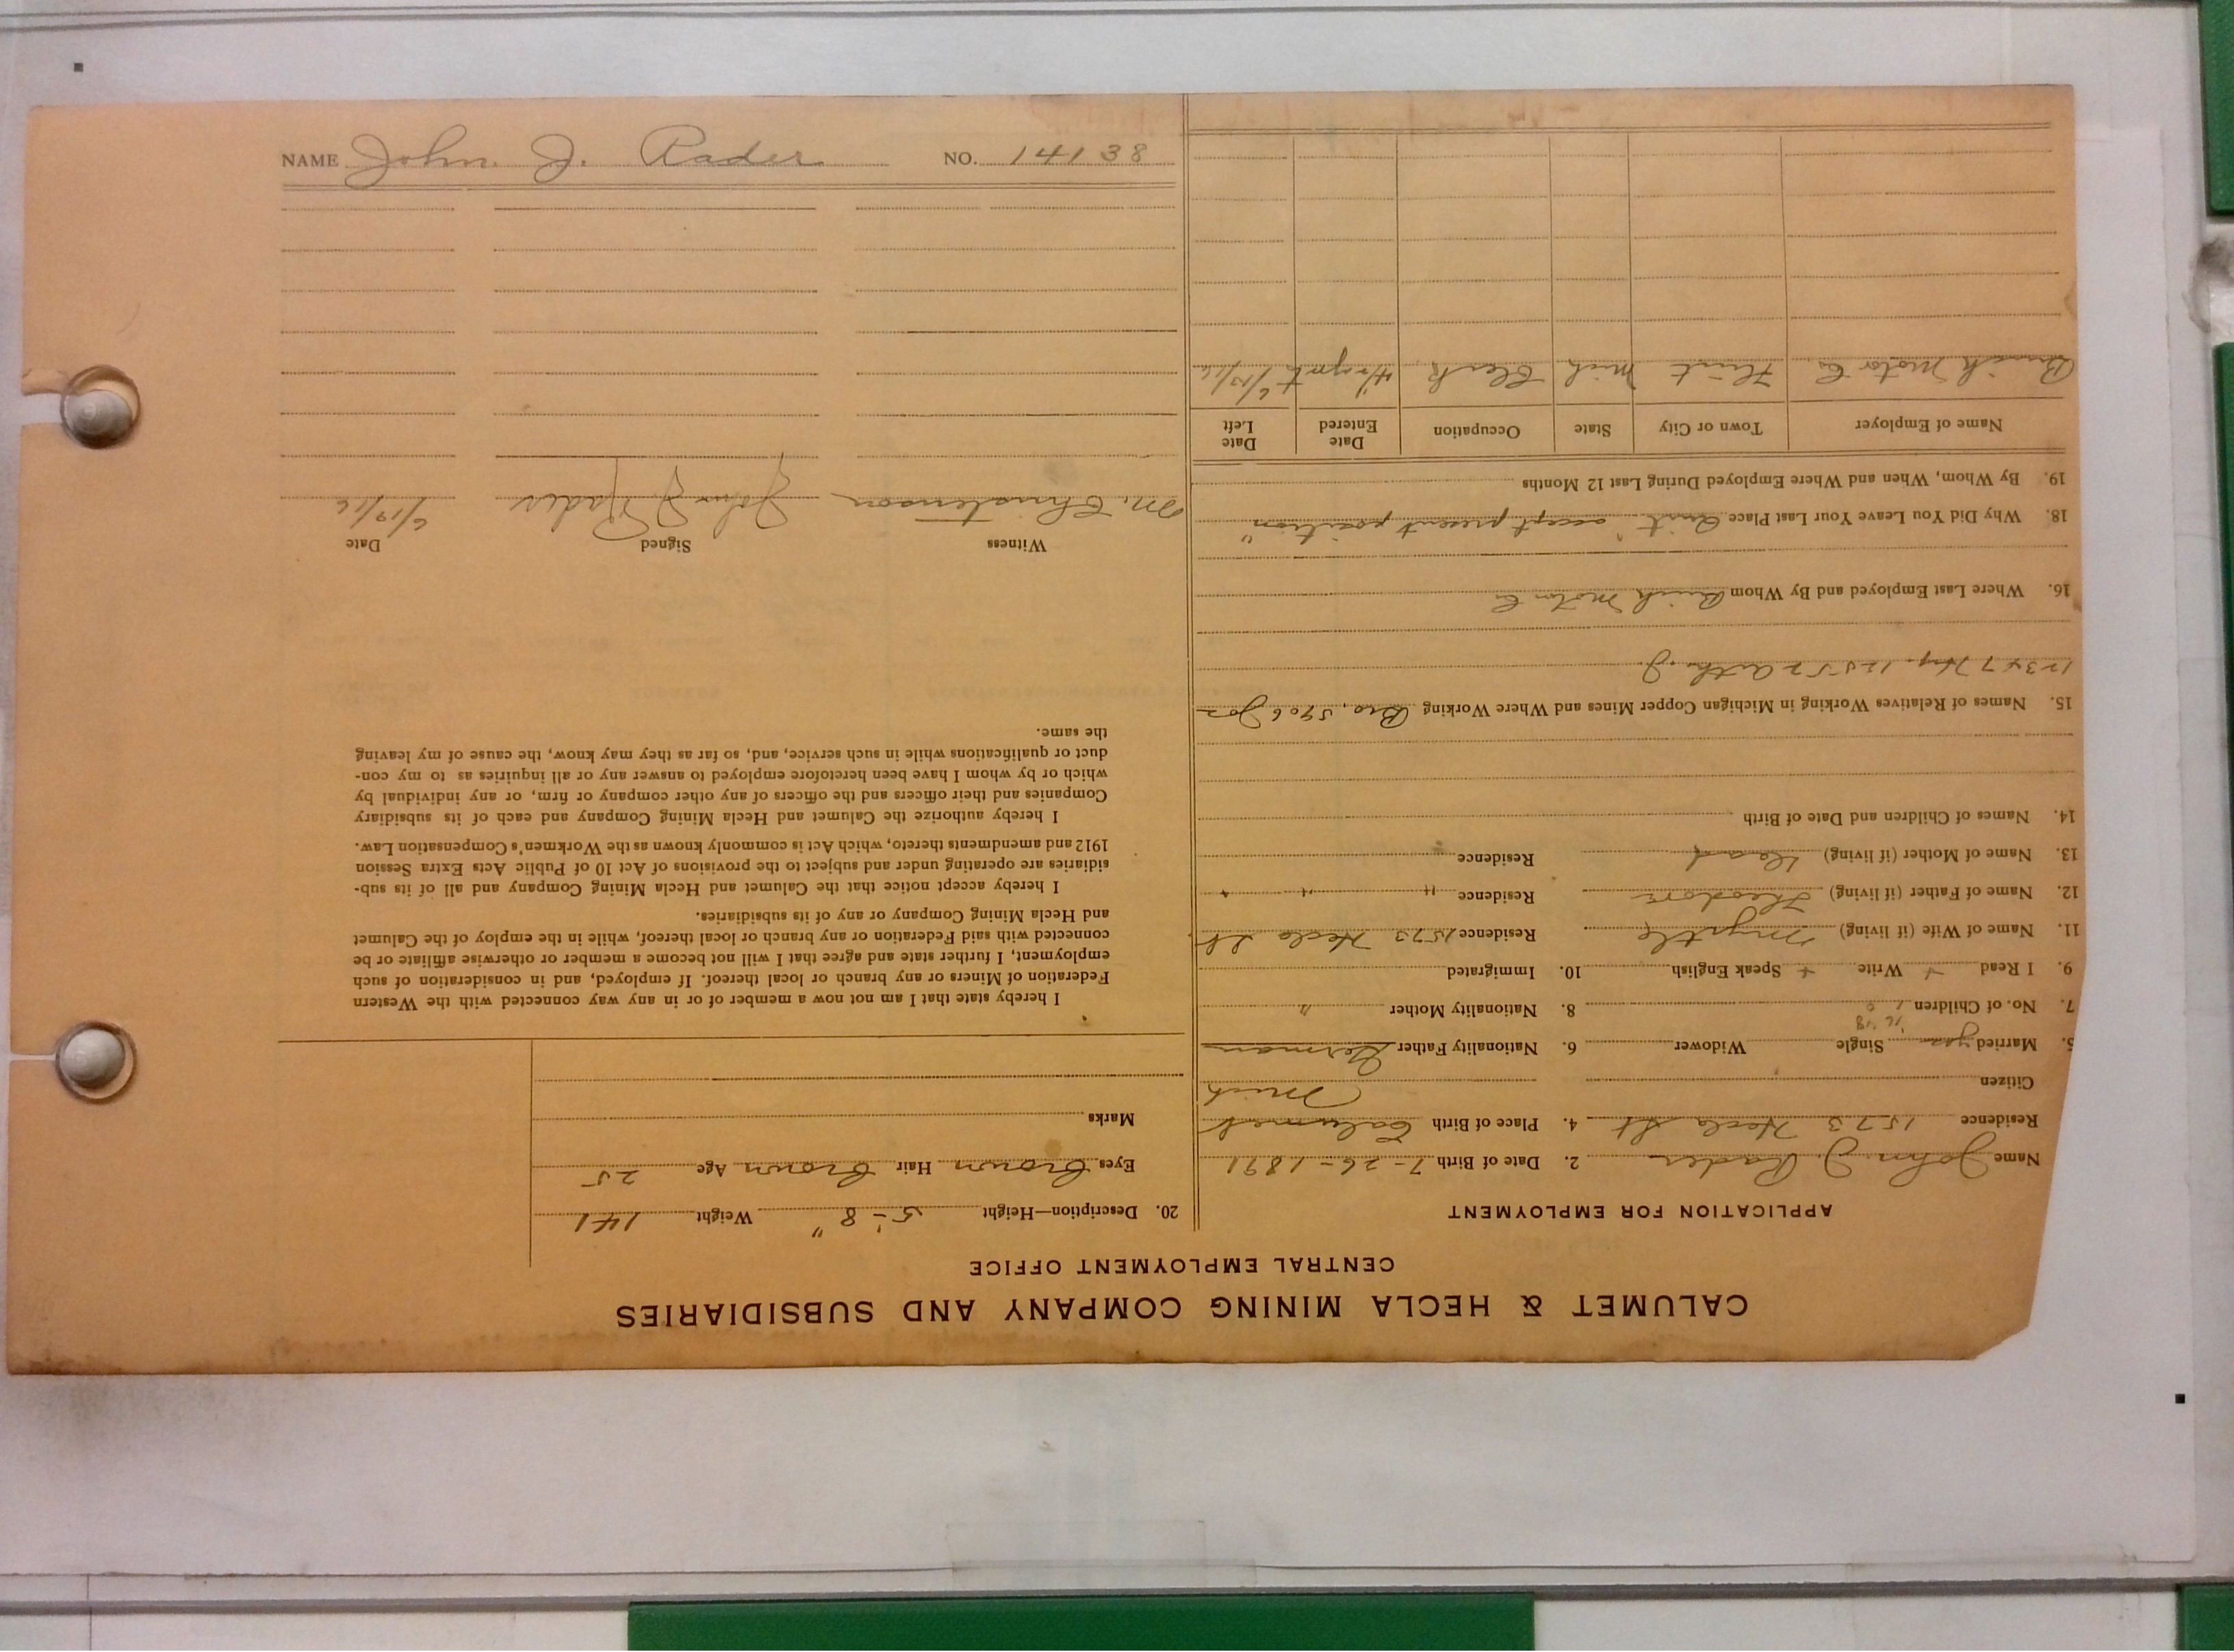 CALUMET & HECLA MINING COMPANY AND SUBSIDIARIES
CENTRAL EMPLOYMENT OFFICE
APPLICATION FOR EMPLOYMENT
Name John J. Rader 2. Date of Birth 7-26-1891
Residence 1573 Hecla St 4. Place of Birth Calumet
Citizen Mich
5. Married yes Single Widower 6. Nationality Father German
'16 '18
7. No. of Children 1 0 8. Nationality Mother "
9. I Read + Write + Speak English 10. Immigrated
11. Name of Wife (if living) Myrtle Residence 1573 Hecla St
12. Name of Father (if living) Theodore Residence " " "
13. Name of Mother (if living) Dead Residence
14. Names of Children and Date of Birth
15. Names of Relatives Working in Michigan Copper Mines and Where Working Bro, 5906 Jos
12347 Hy. 12552 Arth. J.
16. Where Last Employed and By Whom Buick Motor Co
18. Why Did You Leave Your Last Place Quit "accept present position"
19. By Whom, When and Where Employed During Last 12 Months
Name of Employer Town or City State Occupation Date Entered Date Left
Buick Motor Co. Flint Mich Clerk 6/13/16
20. Description—Height 5'-8" Weight 141
Eyes Brown Hair Brown Age 25
Marks
I hereby state that I am not now a member of or in any way connected with the Western
Federation of Miners or any branch or local thereof. If employed, and in consideration of such
employment, I further state and agree that I will not become a member or otherwise affiliate or be
connected with said Federation or any branch or local thereof, while in the employ of the Calumet
and Hecla Mining Company or any of its subsidiaries.
I hereby accept notice that the Calumet and Hecla Mining Company and all of its sub-
sidiaries are operating under and subject to the provisions of Act 10 of Public Acts Extra Session
1912 and amendments thereto, which Act is commonly known as the Workmen's Compensation Law.
I hereby authorize the Calumet and Hecla Mining Company and each of its subsidiary
Companies and their officers and the officers of any other company or firm, or any individual by
which or by whom I have been heretofore employed to answer any or all inquiries as to my con-
duct or qualifications while in such service, and, so far as they may know, the cause of my leaving
the same.
Witness Signed Date
M. Christenson John J Rader 6/19/16
NAME John. J. Rader NO. 14138